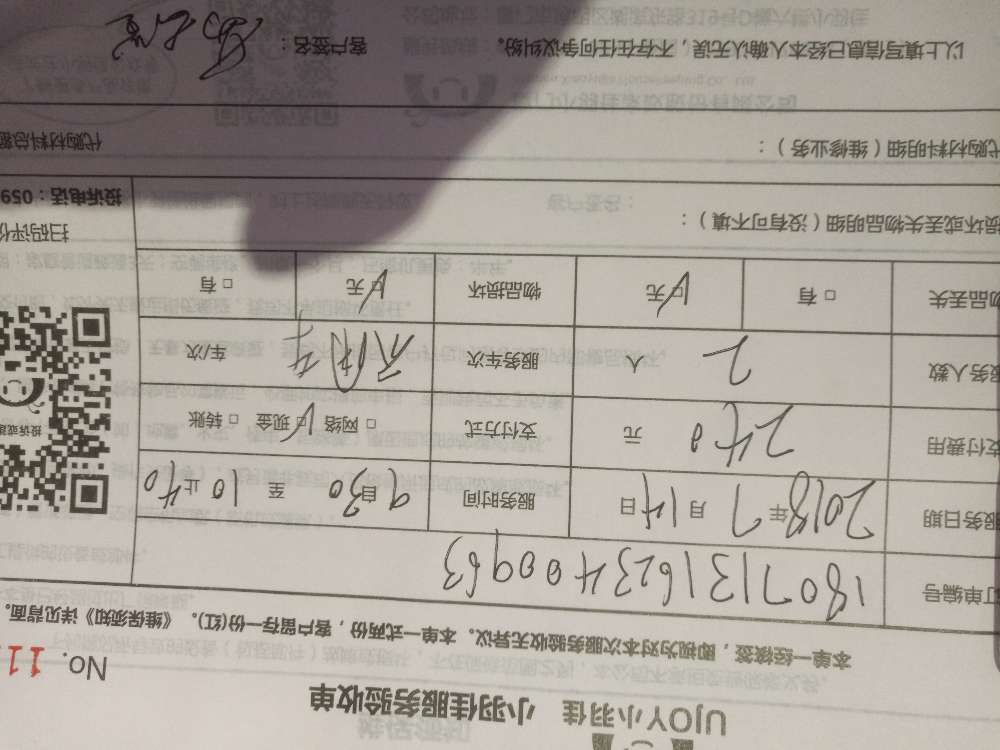 UJOY小羽佳 小羽佳服务验收单
No. 11
本单一经接签，即视为对本次服务验收无异议。本单一式两份，客户留存一份(红)。《维保须知》详见背面。
订单编号 180713162340 0963
服务日期 2018年7月14日 服务时间 9 30自 至 10 止 40
支付费用 240 元 支付方式 □ 网络 □ 现金 □ 转账
服务人数 2 人 服务车次 车/次
物品丢失 □ 有 □ 无 物品损坏 □ 无 □ 有
损坏或丢失物品明细（没有可不填）：
扫码评价
投诉电话：059
代购材料明细（维修业务）：
代购材料总额
以上填写信息已经本人确认无误，不存在任何争议纠纷。 客户签名：